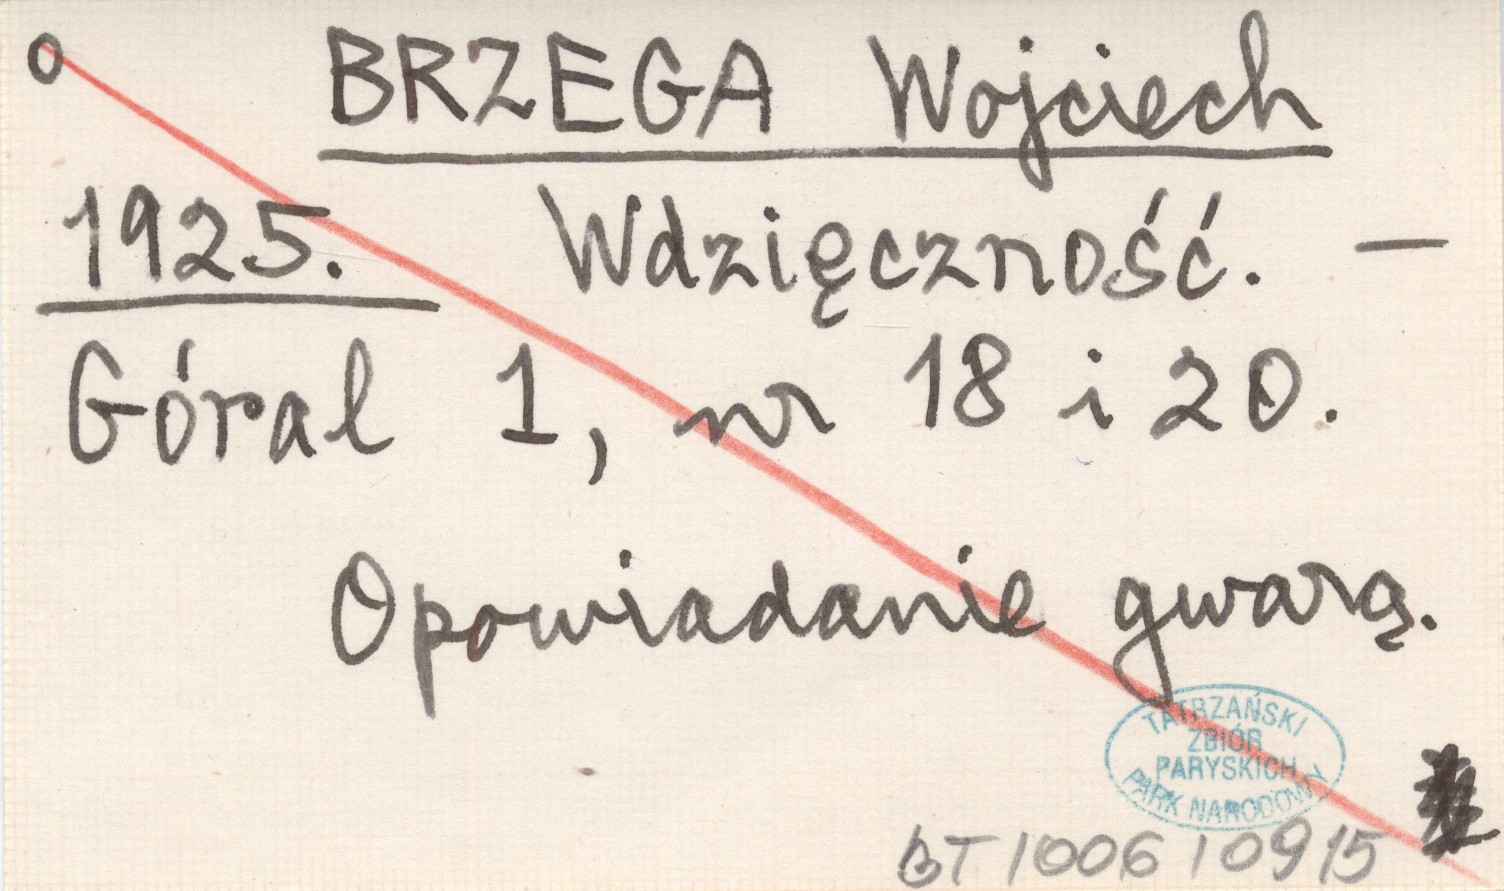 o BRZEGA Wojciech
1925. Wdzięczność. —
Góral 1, nr 18 i 20.
Opowiadanie gwarą.
TATRZAŃSKI
ZBIÓR
PARYSKICH
PARK NARODOWY
BT 1006 10915